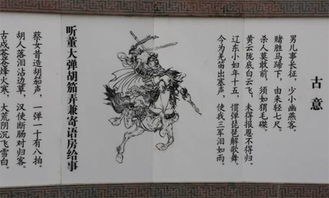 古意
男儿事长征,少小幽燕客。
赌胜马蹄下,由来轻七尺。
杀人莫敢前,须如猬毛磔。
黄云陇底白云飞,未得报恩不得归。
辽东小妇年十五,惯弹琵琶解歌舞。
今为羌笛出塞声,使我三军泪如雨。
听董大弹胡笳弄兼寄语房给事
蔡女昔造胡笳声,一弹一十有八拍。
胡人落泪沾边草,汉使断肠对归客。
古戍苍苍烽火寒,大荒阴沉飞雪白。